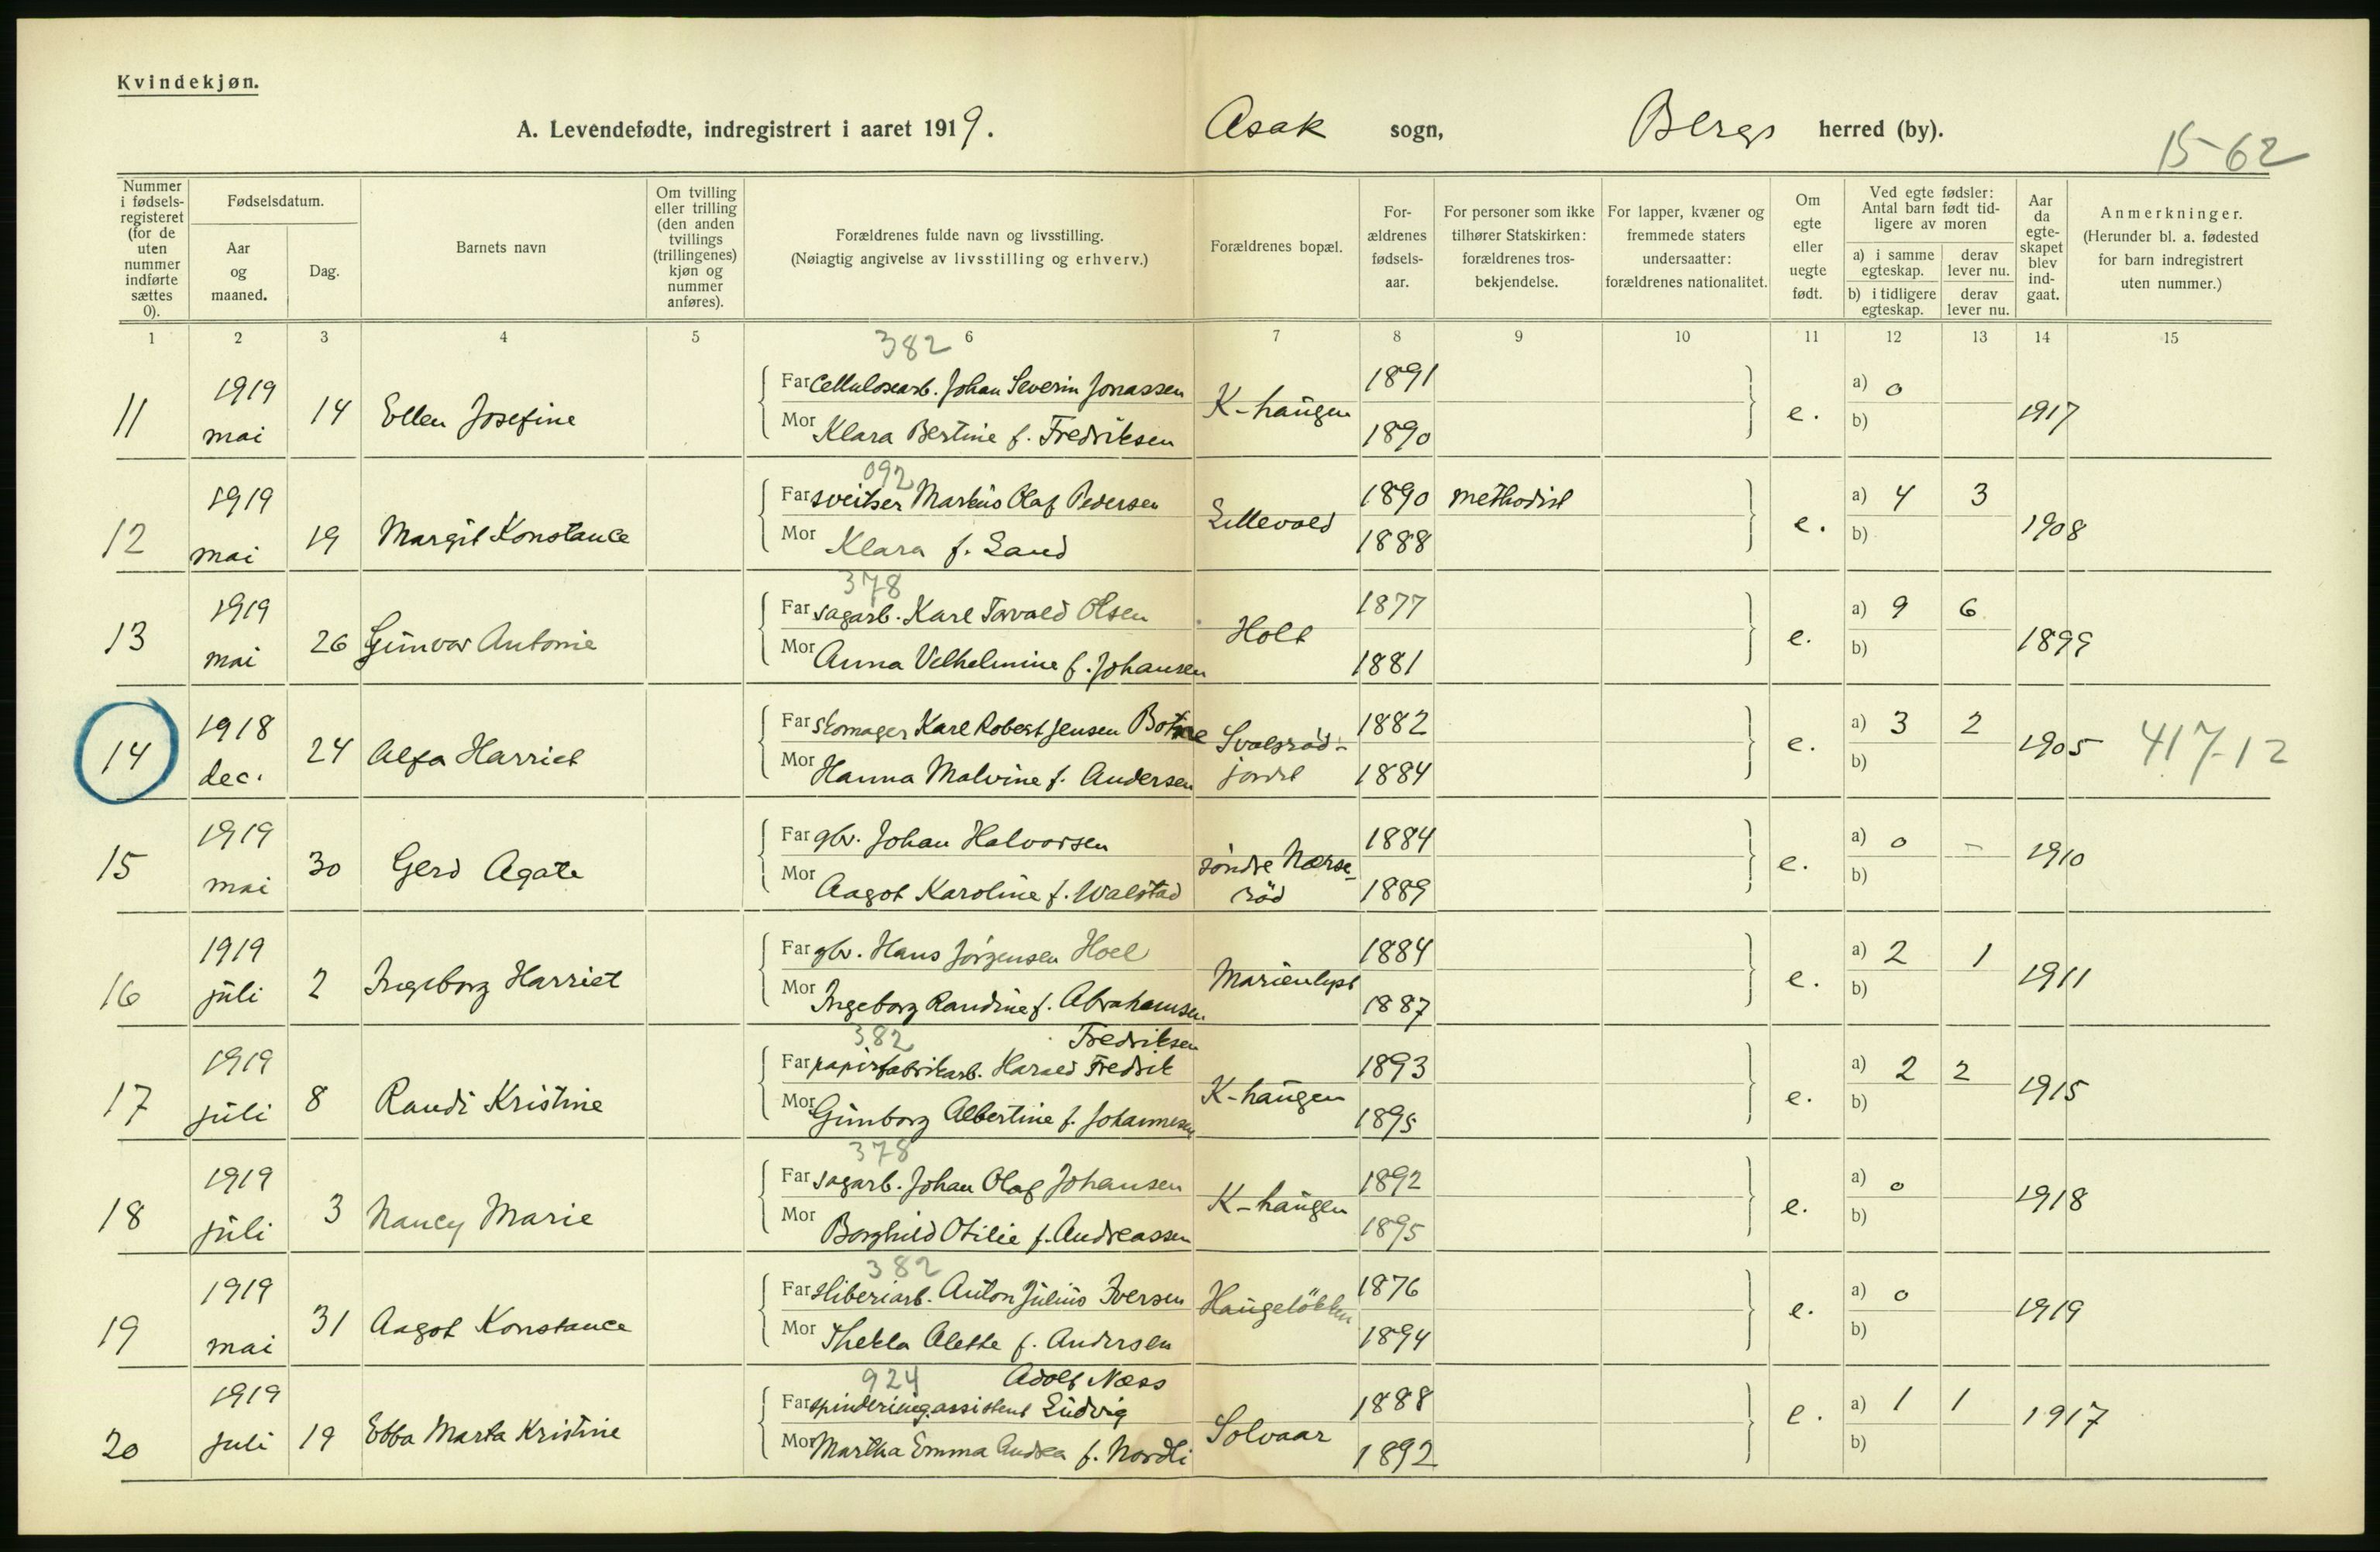 Kvindekjøn.
A. Levendefødte, indregistrert i aaret 1919. Asak sogn, Bergs herred (by).
15-62
Nummer i fødsels-registeret (for de uten nummer indførte sættes 0).
Fødselsdatum.
Aar og maaned.
Dag.
Barnets navn
Om tvilling eller trilling (den anden tvillings (trillingenes) kjøn og nummer anføres).
Forældrenes fulde navn og livsstilling.
(Nøiagtig angivelse av livsstilling og erhverv.)
Forældrenes bopæl.
For-ældrenes fødsels-aar.
For personer som ikke tilhører Statskirken: forældrenes tros-bekjendelse.
For lapper, kvæner og fremmede staters undersaatter: forældrenes nationalitet.
Om egte eller uegte født.
Ved egte fødsler: Antal barn født tid-ligere av moren
a) i samme egteskap. derav lever nu.
b) i tidligere egteskap. derav lever nu.
Aar da egte-skapet blev ind-gaat.
Anmerkninger.
(Herunder bl. a. fødested for barn indregistrert uten nummer.)
1 2 3 4 5 6 7 8 9 10 11 12 13 14 15
382
11 1919 mai 14 Ellen Josefine
Far Cellulosearb. Johan Severin Jonassen K-haugen 1891 e. a) 0 1917
Mor Klara Bertine f. Fredriksen 1890 b)
092
12 1919 mai 19 Margit Konstance
Far sveitser Markus Olaf Pedersen Lillevold 1890 methodist e. a) 4 3 1908
Mor Klara f. Sand 1888 b)
378
13 1919 mai 26 Gunvor Antonie
Far sagarb. Karl Torvald Olsen Holt 1877 e. a) 9 6 1899
Mor Anna Vilhelmine f. Johansen 1881 b)
14 1918 dec. 24 Alfa Harriet
Far skomager Karl Robert Jensen Botne Svalsrød-jordet 1882 e. a) 3 2 1905 417-12
Mor Hanna Malvine f. Andersen 1884 b)
15 1919 mai 30 Gerd Agate
Far gbr. Johan Halvorsen søndre Hærse-rød 1884 e. a) 0 - 1910
Mor Aagot Karoline f. Walstad 1889 b)
16 1919 juli 2 Ingeborg Harriet
Far gbr. Hans Jørgensen Hoel Marienlyst 1884 e. a) 2 1 1911
Mor Ingeborg Randine f. Abrahamsen 1887 b)
382 Fredriksen
17 1919 juli 8 Randi Kristine
Far papirfabrikarb. Harald Fredrik K-haugen 1893 e. a) 2 2 1915
Mor Gunborg Albertine f. Johannesen 1895 b)
378
18 1919 juli 3 Nancy Marie
Far sagarb. Johan Olaf Johansen K-haugen 1892 e. a) 0 1918
Mor Borghild Otilie f. Andreassen 1895 b)
382
19 1919 mai 31 Aagot Konstance
Far sliberiarb. Anton Julius Iversen Haugeløkken 1876 e. a) 0 1919
Mor Thekla Alette f. Andersen 1894 b)
924 Adolf Næss
20 1919 juli 19 Ebba Marta Kristine
Far spinderiingassistent Ludvig Solvaar 1888 e. a) 1 1 1917
Mor Martha Emma Andrea f. Nordli 1892 b)